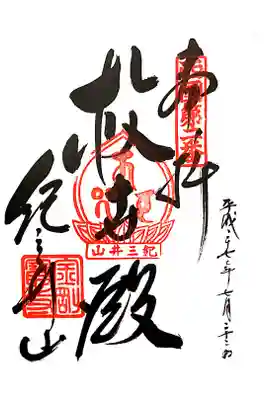 奉拝
西国第二番
救世殿
山井三紀
紀三井山
平成二七年七月二三日